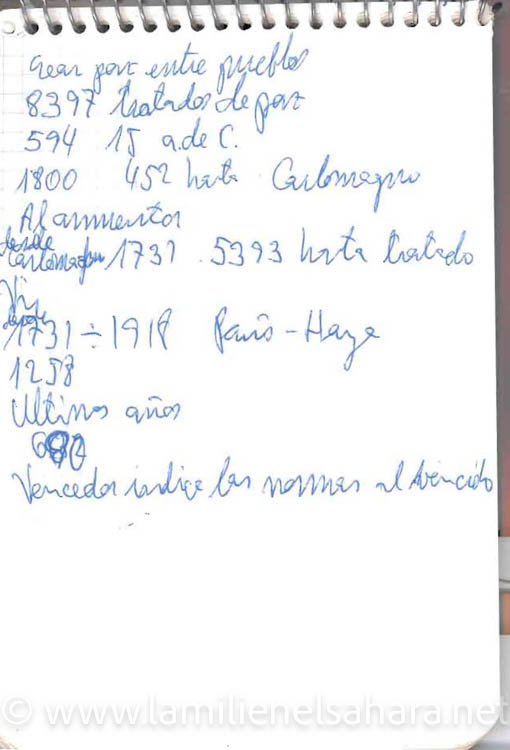 Crear paz entre pueblos
8397 tratados de paz
594 15 a.de C.
1800 452 hasta Carlomagno
Al
desde
Carlomagno 1731 . 5393 hasta tratado
desde
1731 ÷ 1918 París - Haya
1258
Ultimos años
Vencedor indica las normas al vencido
© www.lamilienelsahara.net